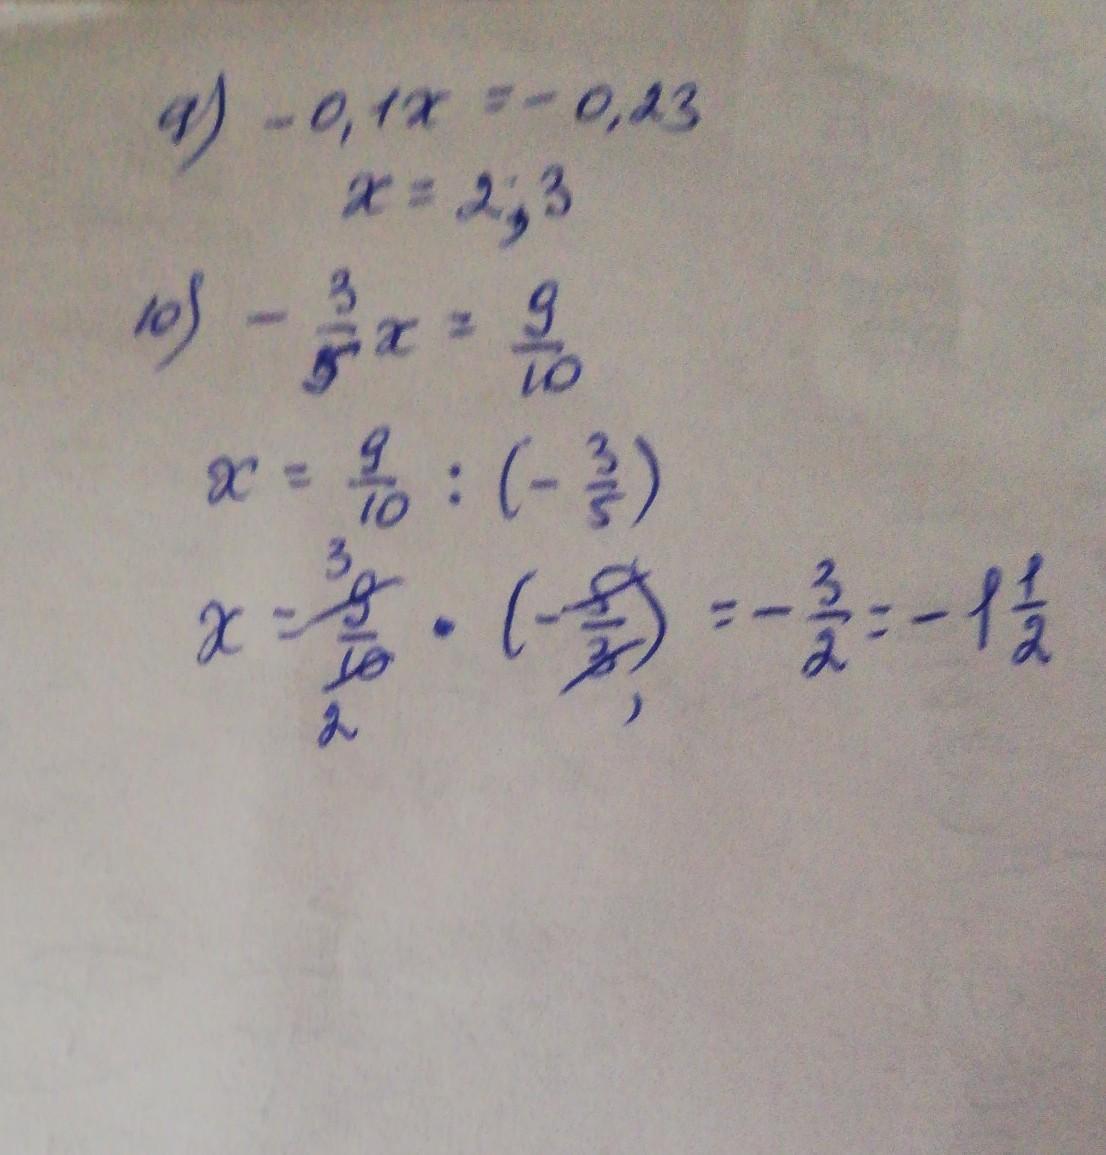 9) -0,1x = -0,23
x = 2,3
10) - 3/5 x = 9/10
x = 9/10 : (- 3/5)
x = 9/10 · (- 5/3) = - 3/2 = - 1 1/2
3
2